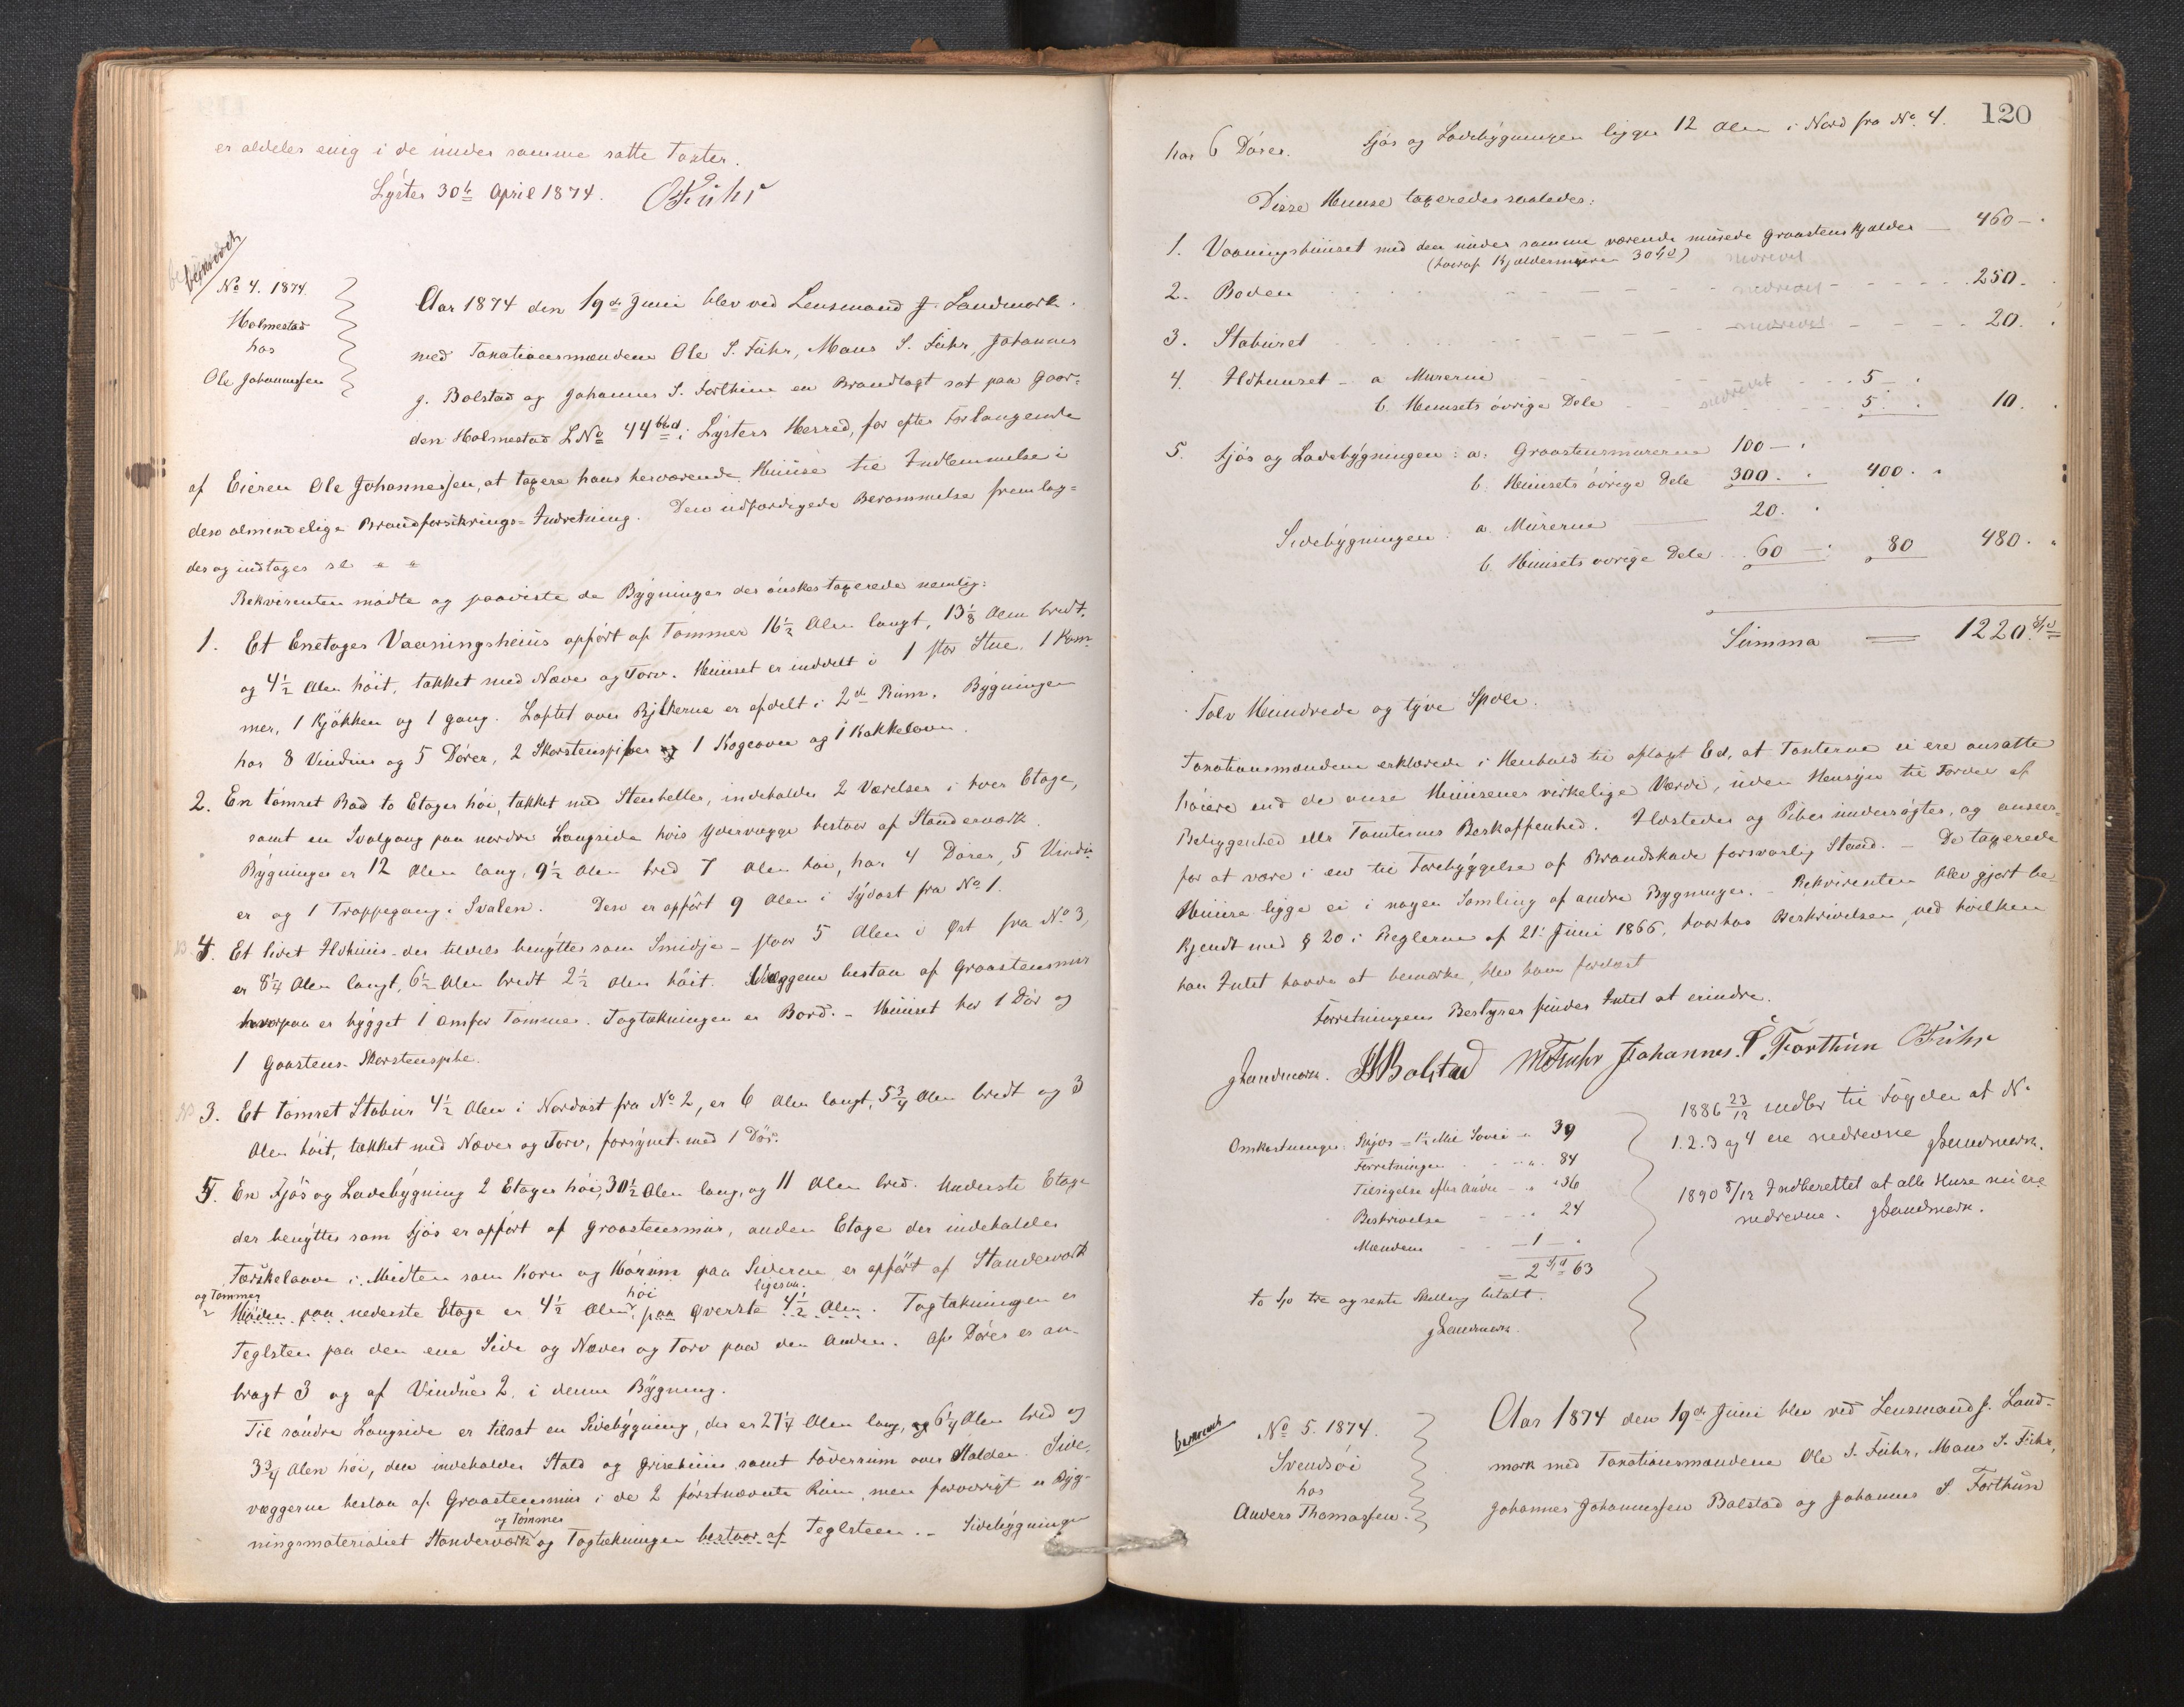 er aldeles enig i de under samme satte Taxter.
Lyster 30te April 1874. OFuhr
beskrevet
No 4. 1874.
Holmestad
hos
Ole Johannessen
Aar 1874 den 19de Juni blev ved Lensmand J. Landmark
med Taxationsmændene Ole S. Fuhr, Mons S. Fuhr, Johannes
J. Bolstad og Johannes S. Forthun en Brandtaxt sat paa Gaar-
den Holmestad LNo 44 i Lysters Herred, for efter Forlangende
af Eieren Ole Johannessen, at taxere hans herværende Huuse til Indlemmelse i
den almindelige Brandforsikrings-Indretning. Den udfærdigede Berammelse fremlag-
des og indtages sl " "
Rekvirenten mødte og paaviste de Bygninger der ønskes taxerede nemlig:
1. Et Enetages Vaaningshuus opført af Tømmer 16½ Alen langt, 13⅛ Alen bredt,
og 4½ Alen høit, tækket med Næver og Torv. Huuset er inddelt i 1 stor Stue, 1 Kam-
mer, 1 Kjøkken og 1 Gang. Loftet over Bjelkerne er afdelt i 2de Rum. Bygningen
har 8 Vinduer og 5 Dører, 2 Skorstenspiber og 1 Kogeovn og 1 Kakkelovn.
2. En tømret Bod to Etager høi, tækket med Steenheller, indeholder 2 Værelser i hver Etage,
samt en Svalgang paa nordre Langside hvis Ydervægge bestaar af Standerværk.
Bygningen er 12 Alen lang, 9½ Alen bred 7 Alen høi, har 4 Dører, 5 Vindu-
er og 1 Trappegang i Svalen. Den er opført 9 Alen i Sydost fra No 1.
4. Et lidet Ildhuus der tildels benyttes som Smidje – staar 5 Alen i Øst fra No 3,
er 8¼ Alen langt, 6½ Alen bredt 2½ Alen høit. Væggene bestaa af Graastensmur
hvorpaa er bygget 1 omfar Tømmer. Tagtækningen er Bord. – Huuset har 1 Dør og
1 Graastens Skorstenspibe.
3. Et tømret Stabur 4½ Alen i Nordost fra No 2, er 6 Alen langt, 5¾ Alen bredt og 3
Alen høit, tækket med Næver og Torv, forsynet med 1 Dør.
5. En Fjøs og Ladebygning 2 Etager høi, 30½ Alen lang, og 11 Alen bred. Underste Etage
der benyttes som Fjøs er opført af Graastensmur, anden Etage der indeholder
Tærskelaave i Midten som Korn og Hørum paa Siderne er opført af Standerværk
og Tømmer høi ligesaa
Høiden paa nederste Etage er 4½ Alen, paa øverste 4½ Alen. Tagtækningen er
Teglsten paa den ene Side og Næver og Torv paa den Anden. Af Dører er an-
bragt 3 og af Vinduer 2, i denne Bygning.
Til søndre Langside er tilsat en Sidebygning, der er 27¼ Alen lang, og 6¼ Alen bred og
3¾ Alen høi, den indeholder Stald og Grisehuus samt Foderrum over Stalden. Side-
væggerne bestaa af Graastensmur i de 2 førstnævnte Rum, men forøvrigt er Byg-
og Tømmer
ningsmaterialiet Standerværk og Tagtækningen bestaar af Teglsteen. – Sidebygningen
120
har 6 Dører. Fjøs og Ladebygningen ligger 12 Alen i Nord fra No. 4.
Disse Huuse taxeredes saaledes:
1. Vaaningshuuset med den under samme værende murede Graastenskjælder 460 –
(hvoraf Kjældermuren 30 Spd) nedrevet
2. Boden nedrevet 250.
3. Staburet nedrevet 20.
4. Ildhuuset – a Murerne 5 –
b. Huusets øvrige Dele nedrevet 5. 10.
5. Fjøs og Ladebygningen: a. Graastensmurerne 100 –
b. Huusets øvrige Dele 300. 400.
Sidebygningen: a. Murerne 20.
b. Huusets øvrige Dele 60 – 80 480.
Summa = 1220 Spd
Tolv Hundrede og tyve Spdlr.
Taxationsmændene erklærede i Henhold til aflagt Ed, at Taxterne ei ere ansatte
høiere end de anse Huusenes virkelige Værdi, uden Hensyn til Fordel af
Beliggenhed eller Tomternes Beskaffenhed. Ildsteder og Piber undersøgtes, og ansees
for at være i en til Forebyggelse af Brandskade forsvarlig Stand. – De taxerede
Huuse ligge ei i nogen Samling af andre Bygninger. – Rekvirenten blev gjort be-
kjendt med § 20 i Reglerne af 21. Juni 1866, hvorhos Beskrivelsen, ved hvilken
han Intet havde at bemærke, blev ham forelæst
Forretningens Bestyrer finder Intet at erindre.
JLandmark. JJBolstad MFuhr Johannes S. Forthun OFuhr
Omkostninger: Skyds – 1½ Mil Søvei " 39
Forretningen " 84
Tilsigelse efter Andre " 36
Beskrivelse " 24
Mændene 1 –
= 2 Spd 63
to Sp tre og sexti Skilling betalt.
JLandmark.
1886 23/12 indbr til Fogden at No
1. 2. 3 og 4 ere nedrevne JLandmark.
1890 5/12 Indberettet at alle Huse nu ere
nedrevne. JLandmark.
beskrevet
No 5. 1874.
Svendsøi
hos
Anders Thomassen.
Aar 1874 den 19de Juni blev ved Lensmand J. Land-
mark med Taxationsmændene Ole S. Fuhr, Mons S. Fuhr,
Johannes Johannessen Bolstad og Johannes S Forthun